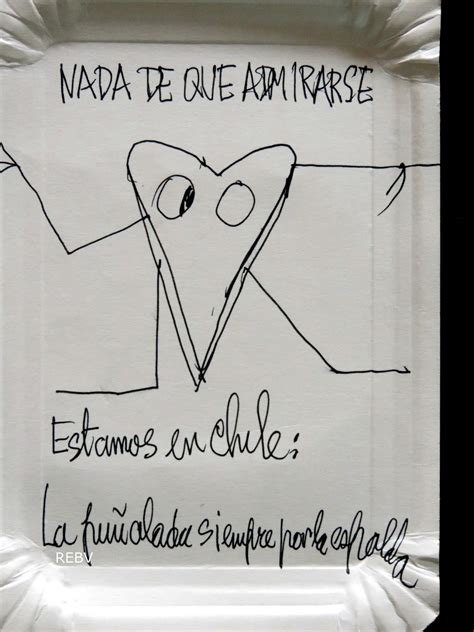 NADA DE QUE ADMIRARSE
Estamos en Chile:
La puñalada siempre por la espalda
REBV